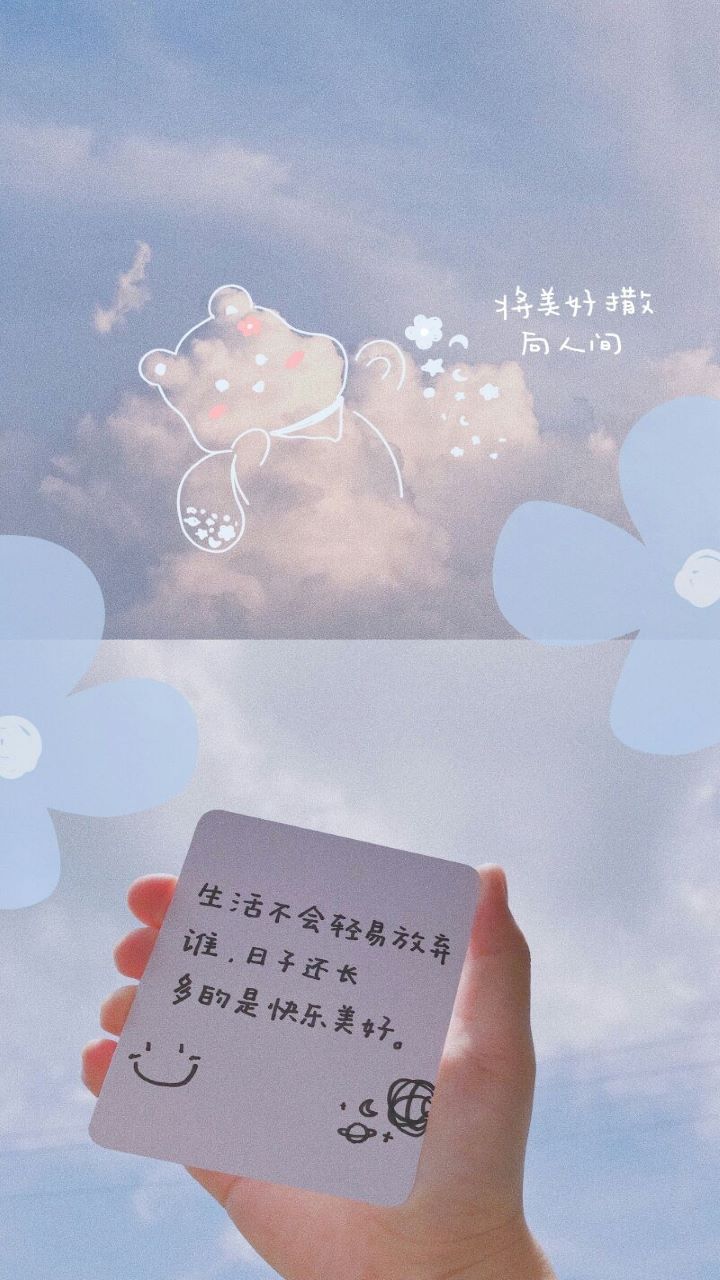 将美好撒
向人间
生活不会轻易放弃
谁，日子还长
多的是快乐美好。